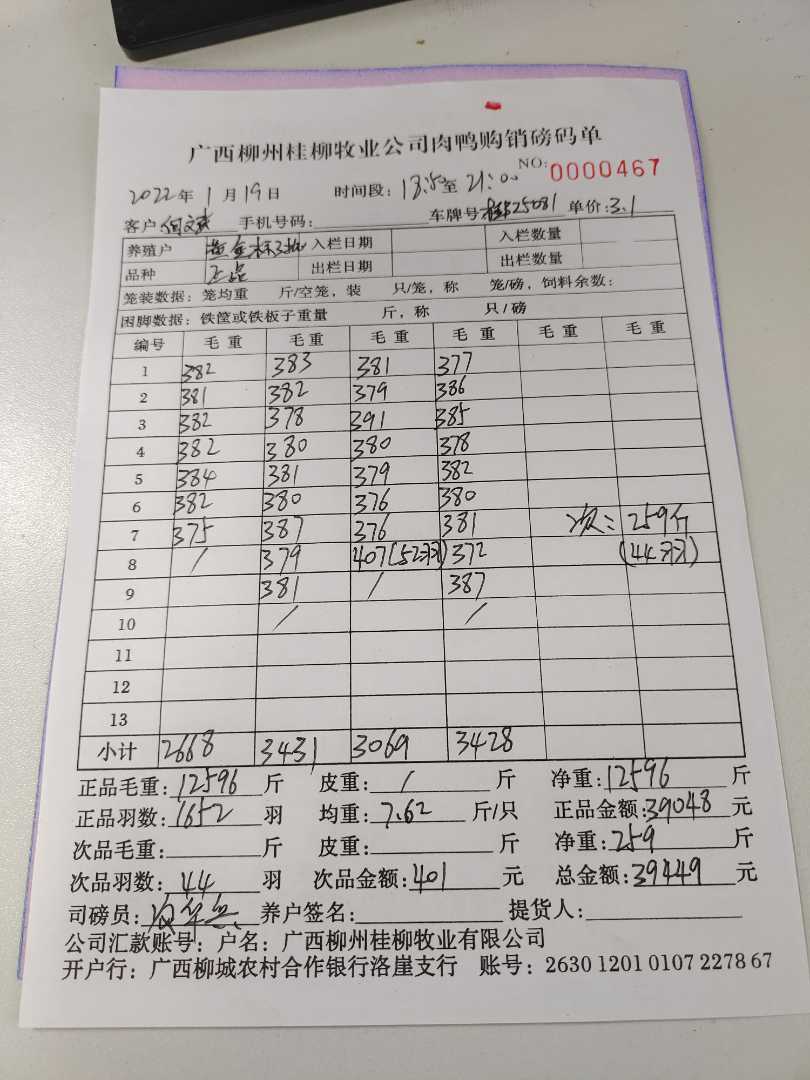 广西柳州桂柳牧业公司肉鸭购销磅码单
NO: 0000467
2022年 1月19日 时间段: 18:50至 21:00
客户 手机号码: 车牌号 25081 单价: 3.1
养殖户 入栏日期 入栏数量
品种 正品 出栏日期 出栏数量
笼装数据: 笼均重 斤/空笼, 装 只/笼, 称 笼/磅, 饲料余数:
困脚数据: 铁筐或铁板子重量 斤, 称 只/磅
编号 毛重 毛重 毛重 毛重 毛重 毛重
1 382 383 381 377
2 381 382 379 386
3 382 378 391 385
4 382 380 380 378
5 384 381 379 382
6 382 380 376 380
7 375 387 376 381 次: 259斤
8 / 379 407(52羽) 372 (44羽)
9 381 / 387
10 / /
11
12
13
小计 2668 3431 3069 3428
正品毛重: 12596 斤 皮重: / 斤 净重: 12596 斤
正品羽数: 1652 羽 均重: 7.62 斤/只 正品金额: 39048 元
次品毛重: 斤 皮重: 斤 净重: 259 斤
次品羽数: 44 羽 次品金额: 401 元 总金额: 39449 元
司磅员: 养户签名: 提货人:
公司汇款账号: 户名: 广西柳州桂柳牧业有限公司
开户行: 广西柳城农村合作银行洛崖支行 账号: 2630 1201 0107 2278 67